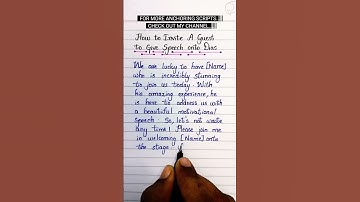 FOR MORE ANCHORING SCRIPTS
CHECK OUT MY CHANNEL...
How to Invite A Guest
to Give Speech onto Dias
We are lucky to have [Name]
who is incredibly stunning
to join us today. With
his amazing experience, he
is here to address us with
a beautiful motivational
speech. So, let's not waste
any time! Please join me
in welcoming [Name] onto
the stage.